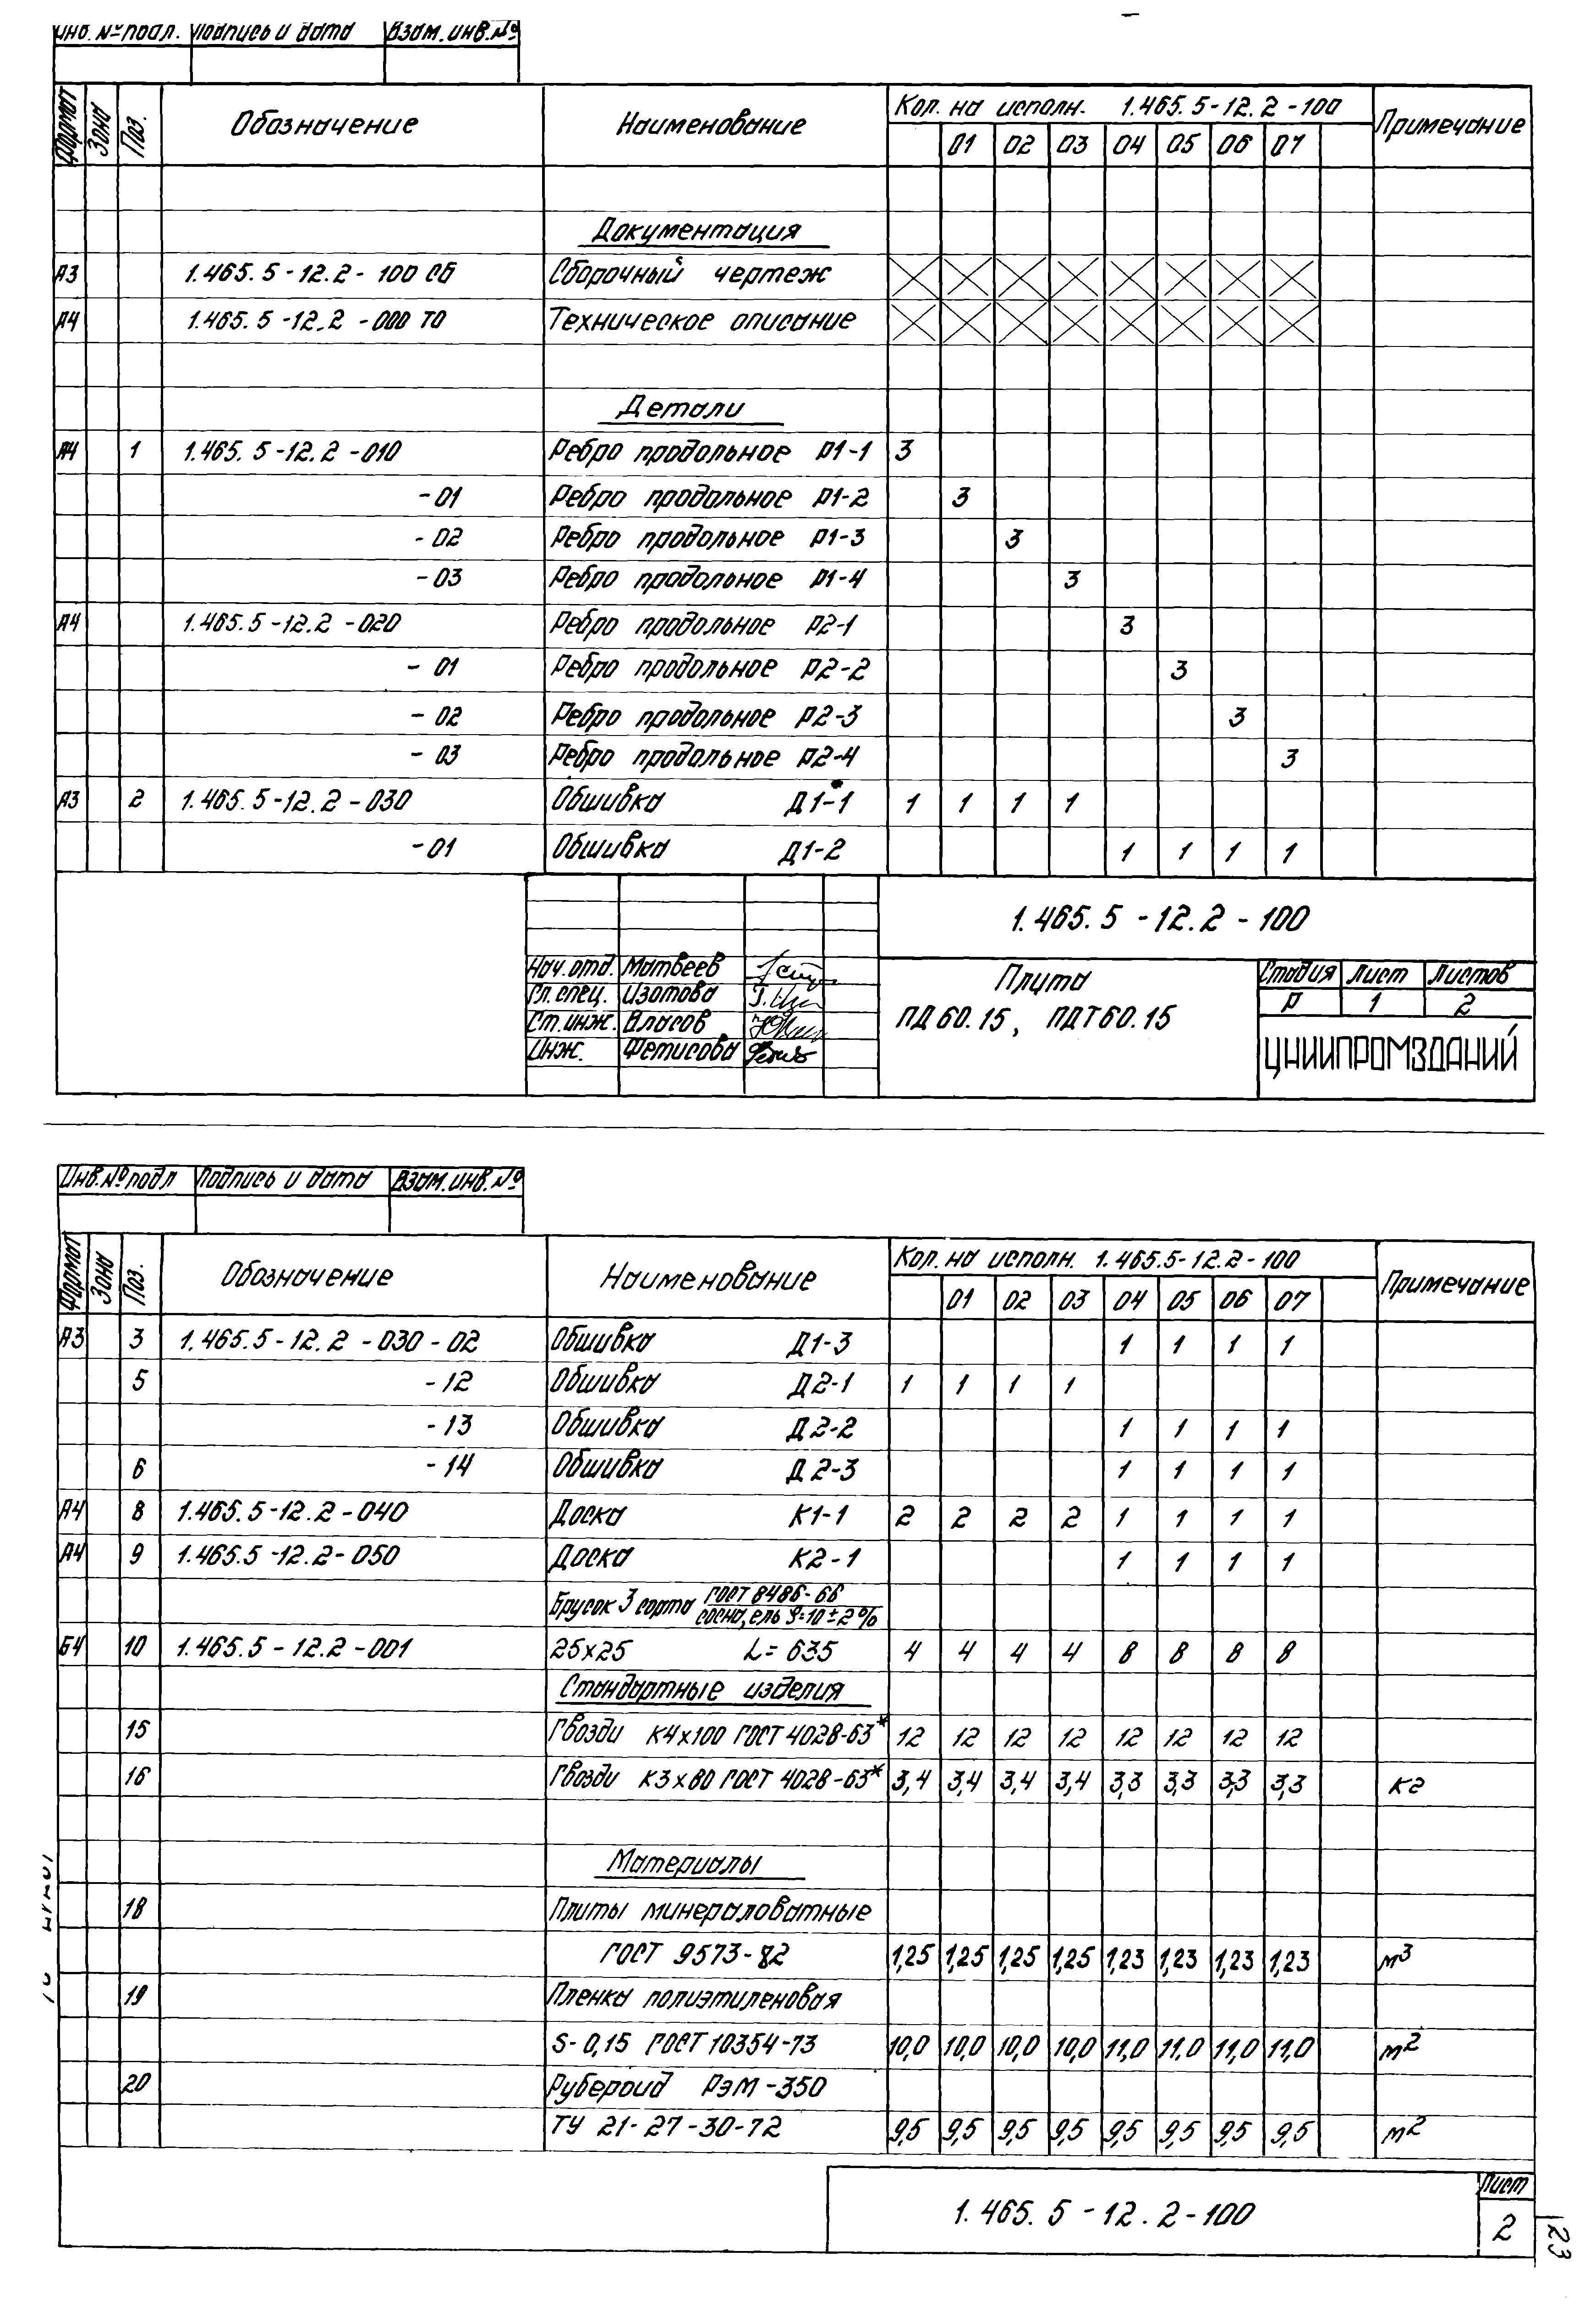 Инв. № подл. Подпись и дата Взам. инв. №
Формат Зона Поз. Обозначение Наименование Кол. на исполн. 1.465.5-12.2-100 Примечание
01 02 03 04 05 06 07
Документация
А3 1.465.5-12.2-100 СБ Сборочный чертеж
А4 1.465.5-12.2-000 ТО Техническое описание
Детали
А4 1 1.465.5-12.2-010 Ребро продольное Р1-1 3
-01 Ребро продольное Р1-2 3
-02 Ребро продольное Р1-3 3
-03 Ребро продольное Р1-4 3
А4 1.465.5-12.2-020 Ребро продольное Р2-1 3
-01 Ребро продольное Р2-2 3
-02 Ребро продольное Р2-3 3
-03 Ребро продольное Р2-4 3
А3 2 1.465.5-12.2-030 Обшивка Д1-1 1 1 1 1
-01 Обшивка Д1-2 1 1 1 1
1.465.5-12.2-100
Нач. отд. Матвеев
Гл. спец. Изотова
Ст. инж. Власов
Инж. Фетисова
Плита
ПД60.15, ПДТ60.15
Стадия Лист Листов
Р 1 2
ЦНИИПРОМЗДАНИЙ
Инв. № подл Подпись и дата Взам. инв. №
Формат Зона Поз. Обозначение Наименование Кол. на исполн. 1.465.5-12.2-100 Примечание
01 02 03 04 05 06 07
А3 3 1.465.5-12.2-030-02 Обшивка Д1-3 1 1 1 1
5 -12 Обшивка Д2-1 1 1 1 1
-13 Обшивка Д2-2 1 1 1 1
6 -14 Обшивка Д2-3 1 1 1 1
А4 8 1.465.5-12.2-040 Доска К1-1 2 2 2 2 1 1 1 1
А4 9 1.465.5-12.2-050 Доска К2-1 1 1 1 1
Брусок 3 сорта ГОСТ 8486-66
сосна, ель 9=10±2%
Б4 10 1.465.5-12.2-001 25х25 L=635 4 4 4 4 8 8 8 8
Стандартные изделия
15 Гвозди К4х100 ГОСТ 4028-63* 12 12 12 12 12 12 12 12
16 Гвозди К3х80 ГОСТ 4028-63* 3,4 3,4 3,4 3,4 3,3 3,3 3,3 3,3 кг
Материалы
18 Плиты минераловатные
ГОСТ 9573-82 1,25 1,25 1,25 1,25 1,23 1,23 1,23 1,23 м³
19 Пленка полиэтиленовая
S-0,15 ГОСТ 10354-73 10,0 10,0 10,0 10,0 11,0 11,0 11,0 11,0 м²
20 Рубероид РЭМ-350
ТУ 21-27-30-72 9,5 9,5 9,5 9,5 9,5 9,5 9,5 9,5 м²
1.465.5-12.2-100
Лист
2
23